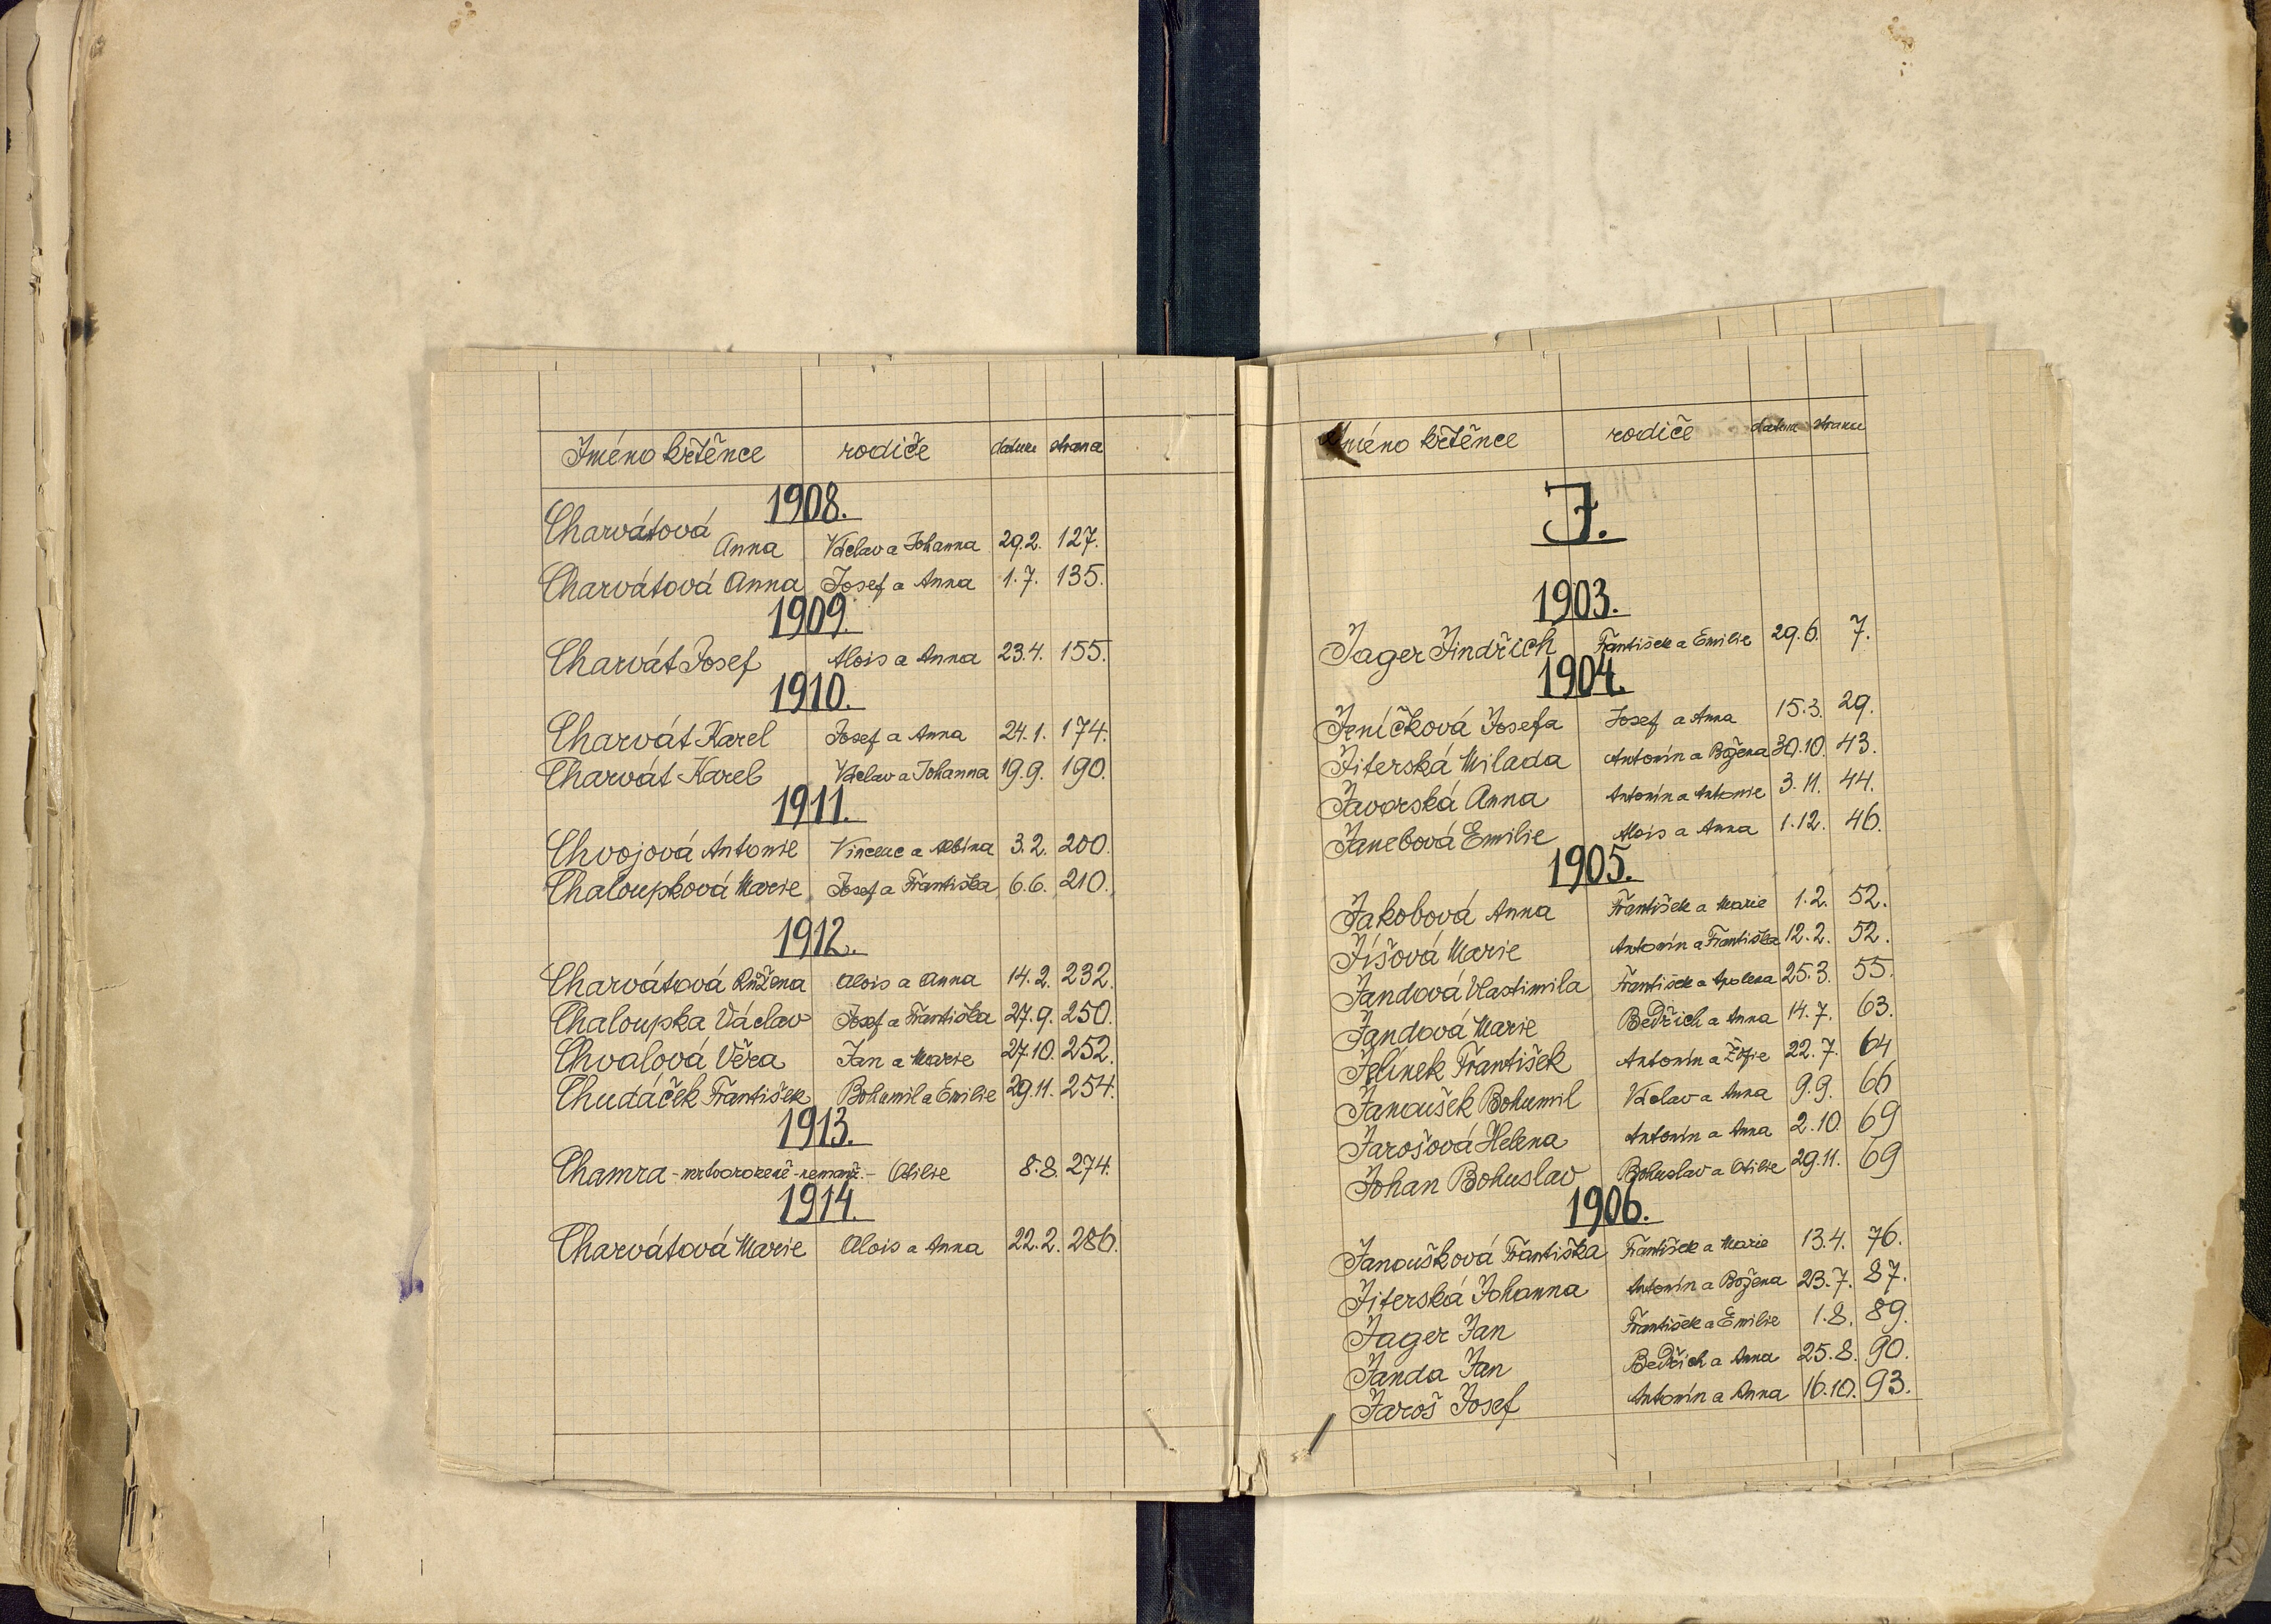 Jméno křtěnce rodiče datum strana
1908.
Charvátová
Anna Václav a Johanna 29.2. 127.
Charvátová Anna Josef a Anna 1.7. 135.
1909.
Charvát Josef Alois a Anna 23.4. 155.
1910.
Charvát Karel Josef a Anna 24.1. 174.
Charvát Karel Václav a Johanna 19.9. 190.
1911.
Chvojová Antonie Vincenc a Albína 3.2. 200.
Chaloupková Marie Josef a Františka 6.6. 210.
1912.
Charvátová Růžena Alois a Anna 14.2. 232.
Chaloupka Václav Josef a Františka 27.9. 250.
Chvalová Věra Jan a Marie 27.10. 252.
Chudáček František Bohumil a Emilie 29.11. 254.
1913.
Chamra - mrtvorozené - nemanž. - Otilie 8.8. 274.
1914.
Charvátová Marie Alois a Anna 22.2. 286.
Jméno křtěnce rodiče datum strana
J.
1903.
Jager Jindřich František a Emilie 29.6. 7.
1904.
Jeníčková Josefa Josef a Anna 15.3. 29.
Jiterská Milada Antonín a Božena 30.10. 43.
Javorská Anna Antonín a Antonie 3.11. 44.
Janebová Emilie Alois a Anna 1.12. 46.
1905.
Jakobová Anna František a Marie 1.2. 52.
Jíšová Marie Antonín a Františka 12.2. 52.
Jandová Vlastimila František a Apolena 25.3. 55.
Jandová Marie Bedřich a Anna 14.7. 63.
Jelínek František Antonín a Žofie 22.7. 64
Janoušek Bohumil Václav a Anna 9.9. 66
Jarošová Helena Antonín a Anna 2.10. 69
Johan Bohuslav Bohuslav a Otilie 29.11. 69
1906.
Janoušková Františka František a Marie 13.4. 76.
Jiterská Johanna Antonín a Božena 23.7. 87.
Jager Jan František a Emilie 1.8. 89.
Janda Jan Bedřich a Anna 25.8. 90.
Jaroš Josef Antonín a Anna 16.10. 93.